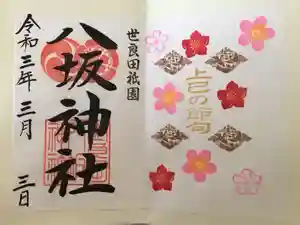 世良田祇園
八坂神社
令和三年三月三日
上巳の節句